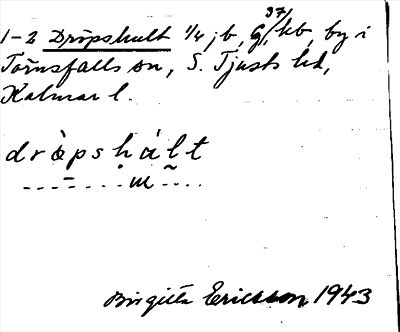 1-2 Dröpshult 1/4, jb, G 37/, kb, by i
Törnsfalls sn, S. Tjusts hd,
Kalmar l.
dròpshált
Birgitta Ericsson 1943